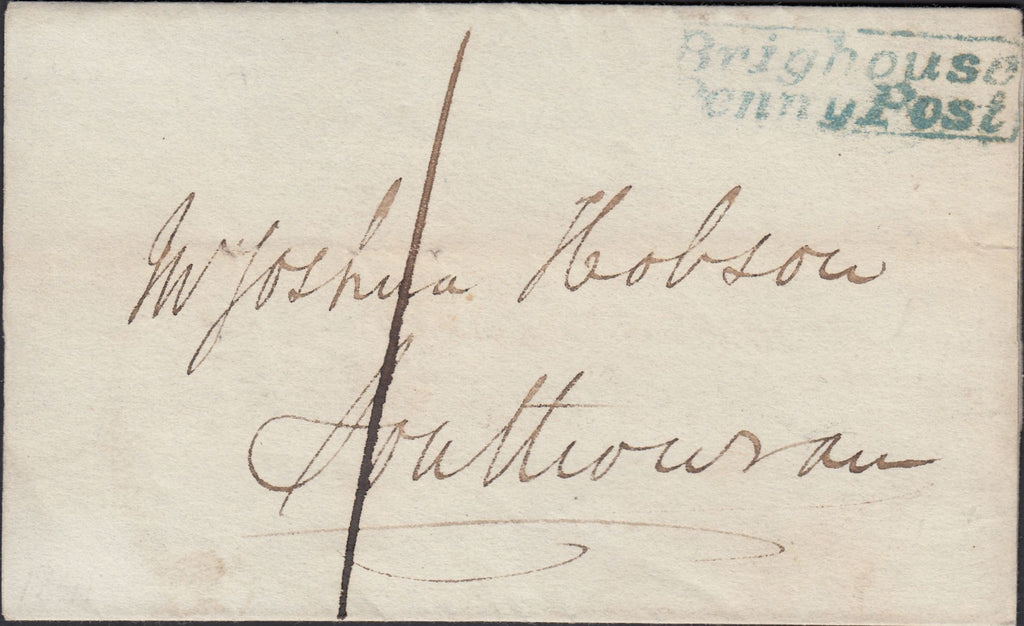 Brighouse
Penny Post
1
Mr Joshua Hobson
Southowram